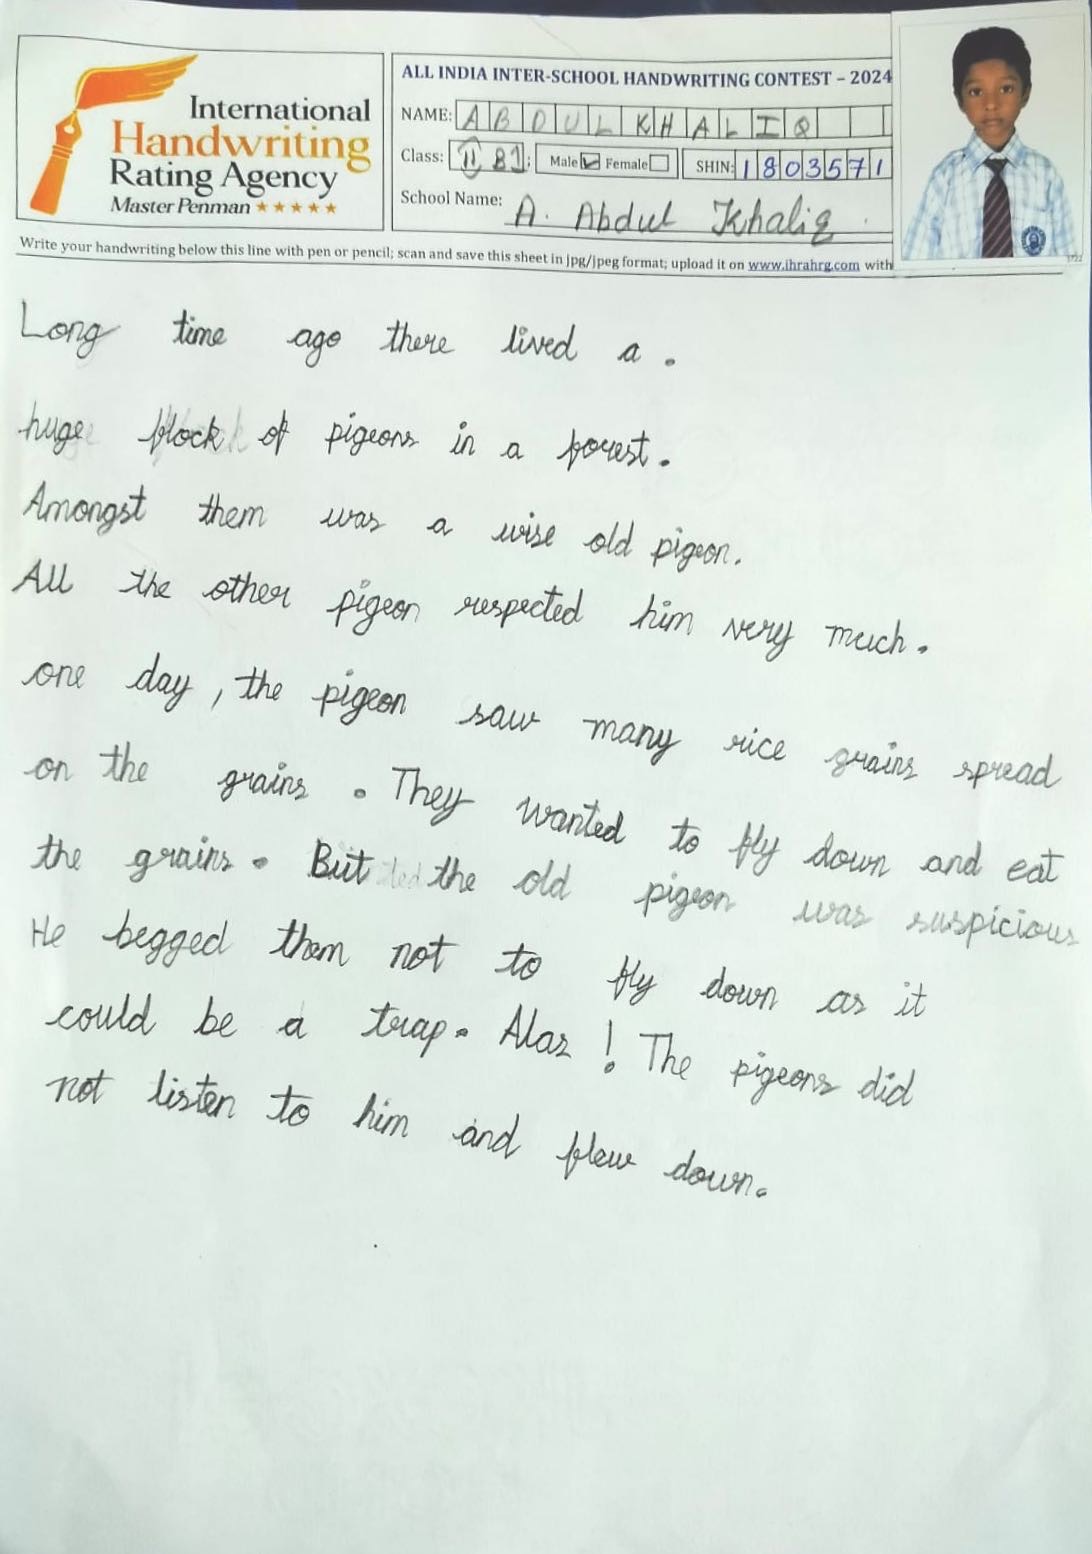 International
Handwriting
Rating Agency
Master Penman ★★★★★
ALL INDIA INTER-SCHOOL HANDWRITING CONTEST – 2024
NAME: ABDUL KHALIQ
Class: II B1 Male ☑ Female ☐ SHIN: 1803571
School Name: A. Abdul Khaliq
Write your handwriting below this line with pen or pencil; scan and save this sheet in jpg/jpeg format; upload it on www.ihrahrg.com with
Long time ago there lived a .
huge flock of pigeons in a forest.
Amongst them was a wise old pigeon.
All the other pigeon respected him very much.
one day, the pigeon saw many rice grains spread
on the grains. They wanted to fly down and eat
the grains. But the old pigeon was suspicious
He begged them not to fly down as it
could be a trap. Alas! The pigeons did
not listen to him and flew down.